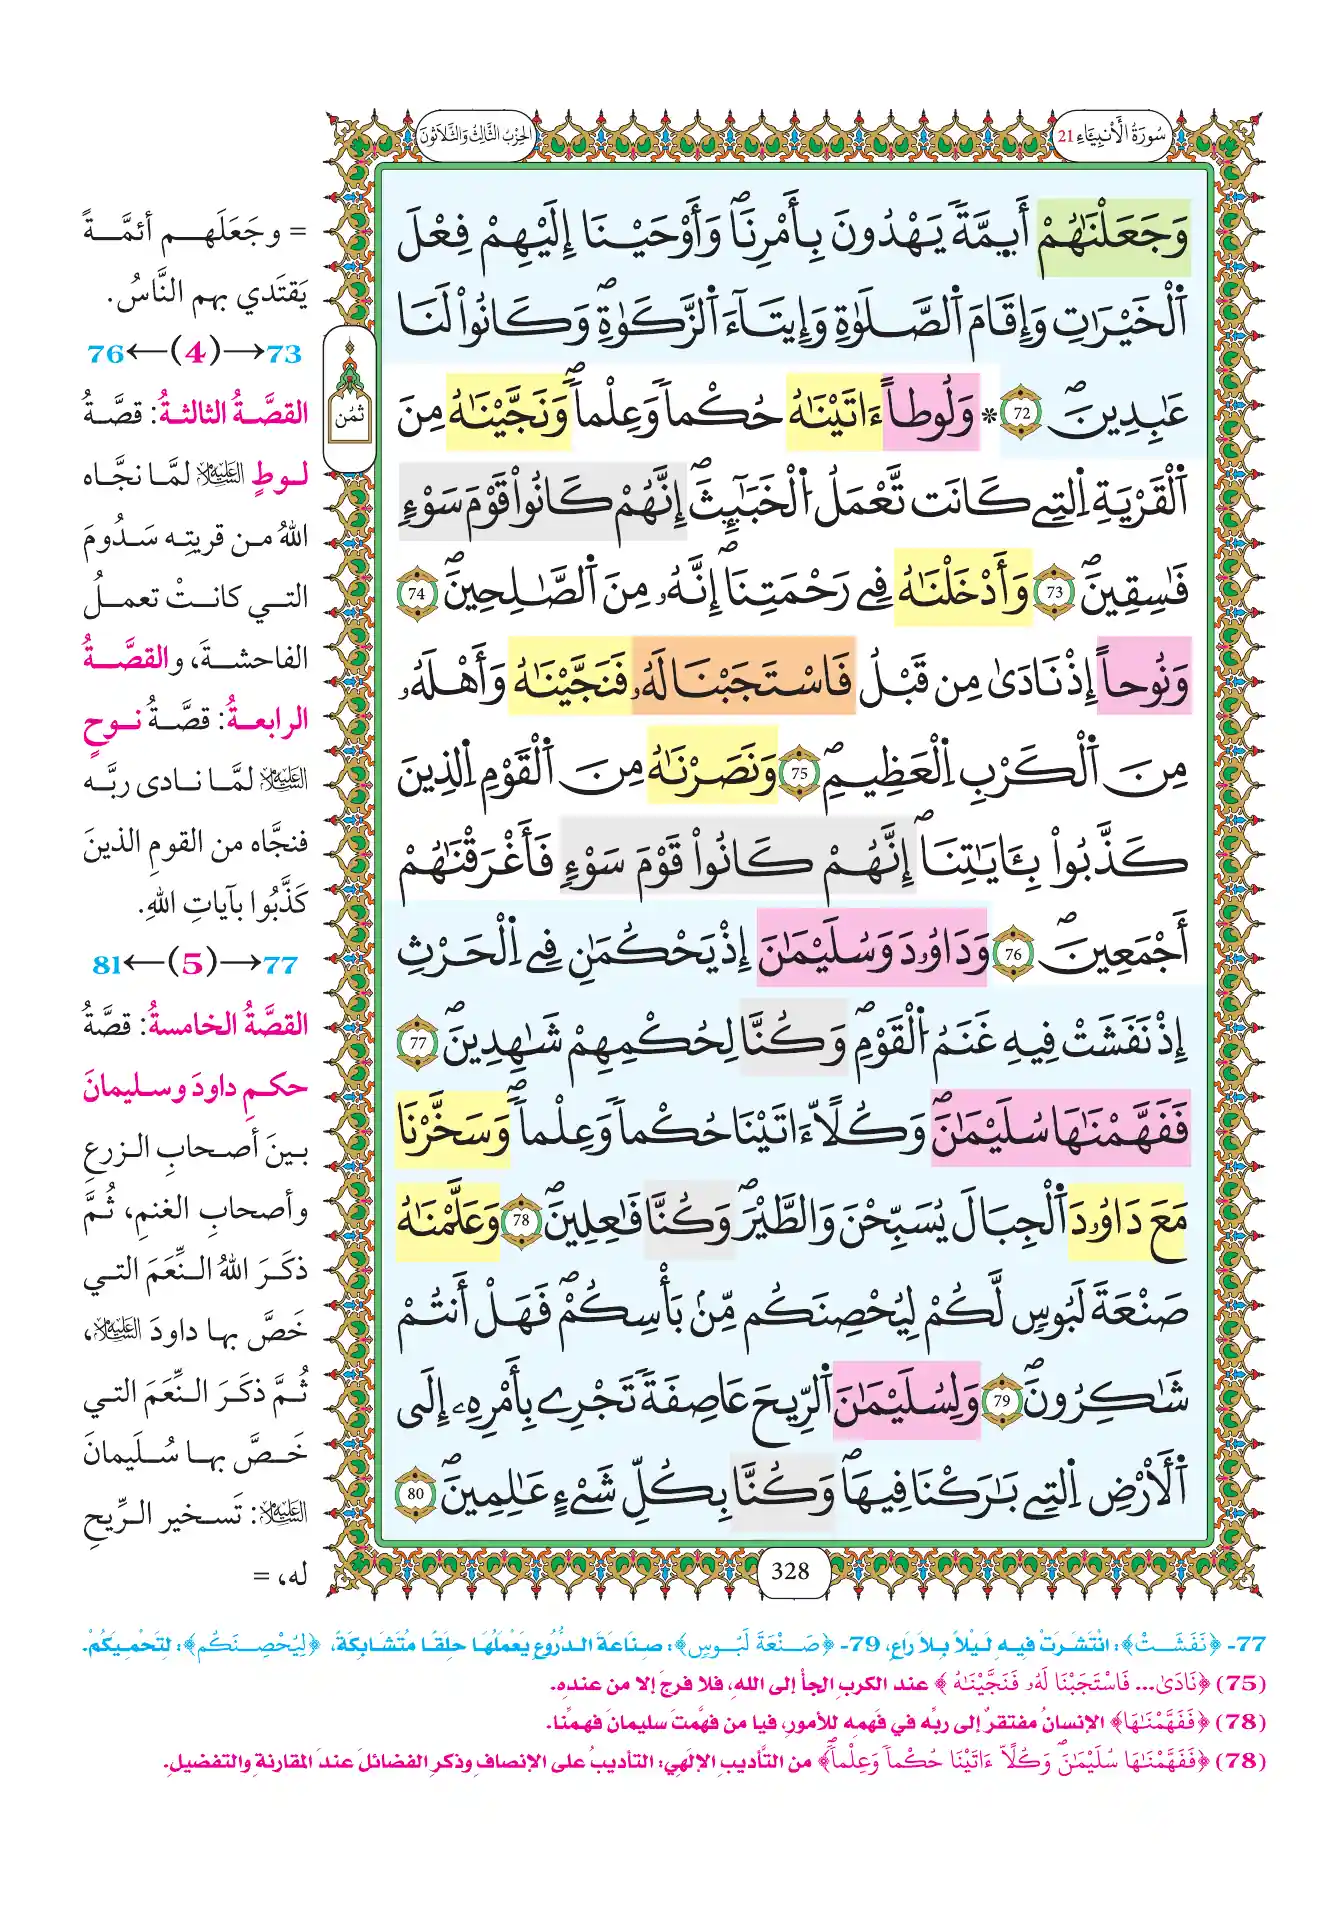 سُورَةُ الْأَنبِيَاءِ 21
الحِزْبُ الثَّالِثُ وَالثَّلَاثُونَ
وَجَعَلْنَٰهُمْ أَيِمَّةً يَهْدُونَ بِأَمْرِنَا وَأَوْحَيْنَا إِلَيْهِمْ فِعْلَ
اَ۬لْخَيْرَٰتِ وَإِقَامَ اَ۬لصَّلَوٰةِ وَإِيتَآءَ اَ۬لزَّكَوٰةِ وَكَانُواْ لَنَا
عَٰبِدِينَ 72 * وَلُوطاً ءَاتَيْنَٰهُ حُكْماً وَعِلْماً وَنَجَّيْنَٰهُ مِنَ
اَ۬لْقَرْيَةِ اِ۬لتِي كَانَت تَّعْمَلُ اُ۬لْخَبَٰٓئِثَ إِنَّهُمْ كَانُواْ قَوْمَ سَوْءٖ
فَٰسِقِينَ 73 وَأَدْخَلْنَٰهُ فِي رَحْمَتِنَا إِنَّهُۥ مِنَ اَ۬لصَّٰلِحِينَ 74
وَنُوحاً إِذْ نَادَىٰ مِن قَبْلُ فَاسْتَجَبْنَا لَهُۥ فَنَجَّيْنَٰهُ وَأَهْلَهُۥ
مِنَ اَ۬لْكَرْبِ اِ۬لْعَظِيمِ 75 وَنَصَرْنَٰهُ مِنَ اَ۬لْقَوْمِ اِ۬لذِينَ
كَذَّبُواْ بِـَٔايَٰتِنَا إِنَّهُمْ كَانُواْ قَوْمَ سَوْءٖ فَأَغْرَقْنَٰهُمْ
أَجْمَعِينَ 76 وَدَاوُۥدَ وَسُلَيْمَٰنَ إِذْ يَحْكُمَٰنِ فِي اِ۬لْحَرْثِ
إِذْ نَفَشَتْ فِيهِ غَنَمُ اُ۬لْقَوْمِ وَكُنَّا لِحُكْمِهِمْ شَٰهِدِينَ 77
فَفَهَّمْنَٰهَا سُلَيْمَٰنَ وَكُلّاً ءَاتَيْنَا حُكْماً وَعِلْماً وَسَخَّرْنَا
مَعَ دَاوُۥدَ اَ۬لْجِبَالَ يُسَبِّحْنَ وَالطَّيْرَ وَكُنَّا فَٰعِلِينَ 78 وَعَلَّمْنَٰهُ
صَنْعَةَ لَبُوسٖ لَّكُمْ لِيُحْصِنَكُم مِّنۢ بَأْسِكُمْ فَهَلْ أَنتُمْ
شَٰكِرُونَ 79 وَلِسُلَيْمَٰنَ اَ۬لرِّيحَ عَاصِفَةً تَجْرِي بِأَمْرِهِۦٓ إِلَى
اَ۬لْأَرْضِ اِ۬لتِي بَٰرَكْنَا فِيهَا وَكُنَّا بِكُلِّ شَيْءٍ عَٰلِمِينَ 80
ثُمُن
328
= وجَعَلَهم أئمَّةً
يَقتَدي بهم النَّاسُ.
73→(4)←76
القصَّةُ الثالثةُ: قصَّةُ
لوطٍ عليه السلام لمَّا نجَّاه
اللهُ من قريتِه سَدُومَ
التي كانتْ تعملُ
الفاحشةَ، والقصَّةُ
الرابعةُ: قصَّةُ نوحٍ
عليه السلام لمَّا نادى ربَّه
فنجَّاه من القومِ الذينَ
كَذَّبُوا بآياتِ اللهِ.
77→(5)←81
القصَّةُ الخامسةُ: قصَّةُ
حكمِ داودَ وسليمانَ
بينَ أصحابِ الزرعِ
وأصحابِ الغنمِ، ثُمَّ
ذكَرَ اللهُ النِّعَمَ التي
خَصَّ بها داودَ عليه السلام،
ثُمَّ ذكَرَ النِّعَمَ التي
خَصَّ بها سُلَيمانَ
عليه السلام: تَسخير الرِّيحِ
له، =
77- ﴿نَفَشَتْ﴾: انْتَشَرَتْ فيهِ لَيْلاً بِلاَ رَاعٍ، 79- ﴿صَنْعَةَ لَبُوسٍ﴾: صِنَاعَةَ الدُّرُوعِ يَعْمَلُهَا حِلَقًا مُتَشَابِكَةً، ﴿لِيُحْصِنَكُم﴾: لِتَحْمِيَكُمْ.
(75) ﴿نَادَىٰ... فَاسْتَجَبْنَا لَهُۥ فَنَجَّيْنَٰهُ﴾ عند الكربِ الجأْ إلى اللهِ، فلا فرجَ إلا من عندِه.
(78) ﴿فَفَهَّمْنَٰهَا﴾ الإنسانُ مفتقرٌ إلى ربِّه في فَهمِه للأمورِ، فيا من فهَّمتَ سليمانَ فهمِّنا.
(78) ﴿فَفَهَّمْنَٰهَا سُلَيْمَٰنَ وَكُلّاً ءَاتَيْنَا حُكْماً وَعِلْماً﴾ من التَّأديبِ الإلهيِ: التأديبُ على الإنصافِ وذكرِ الفضائلِ عندَ المقارنةِ والتفضيلِ.